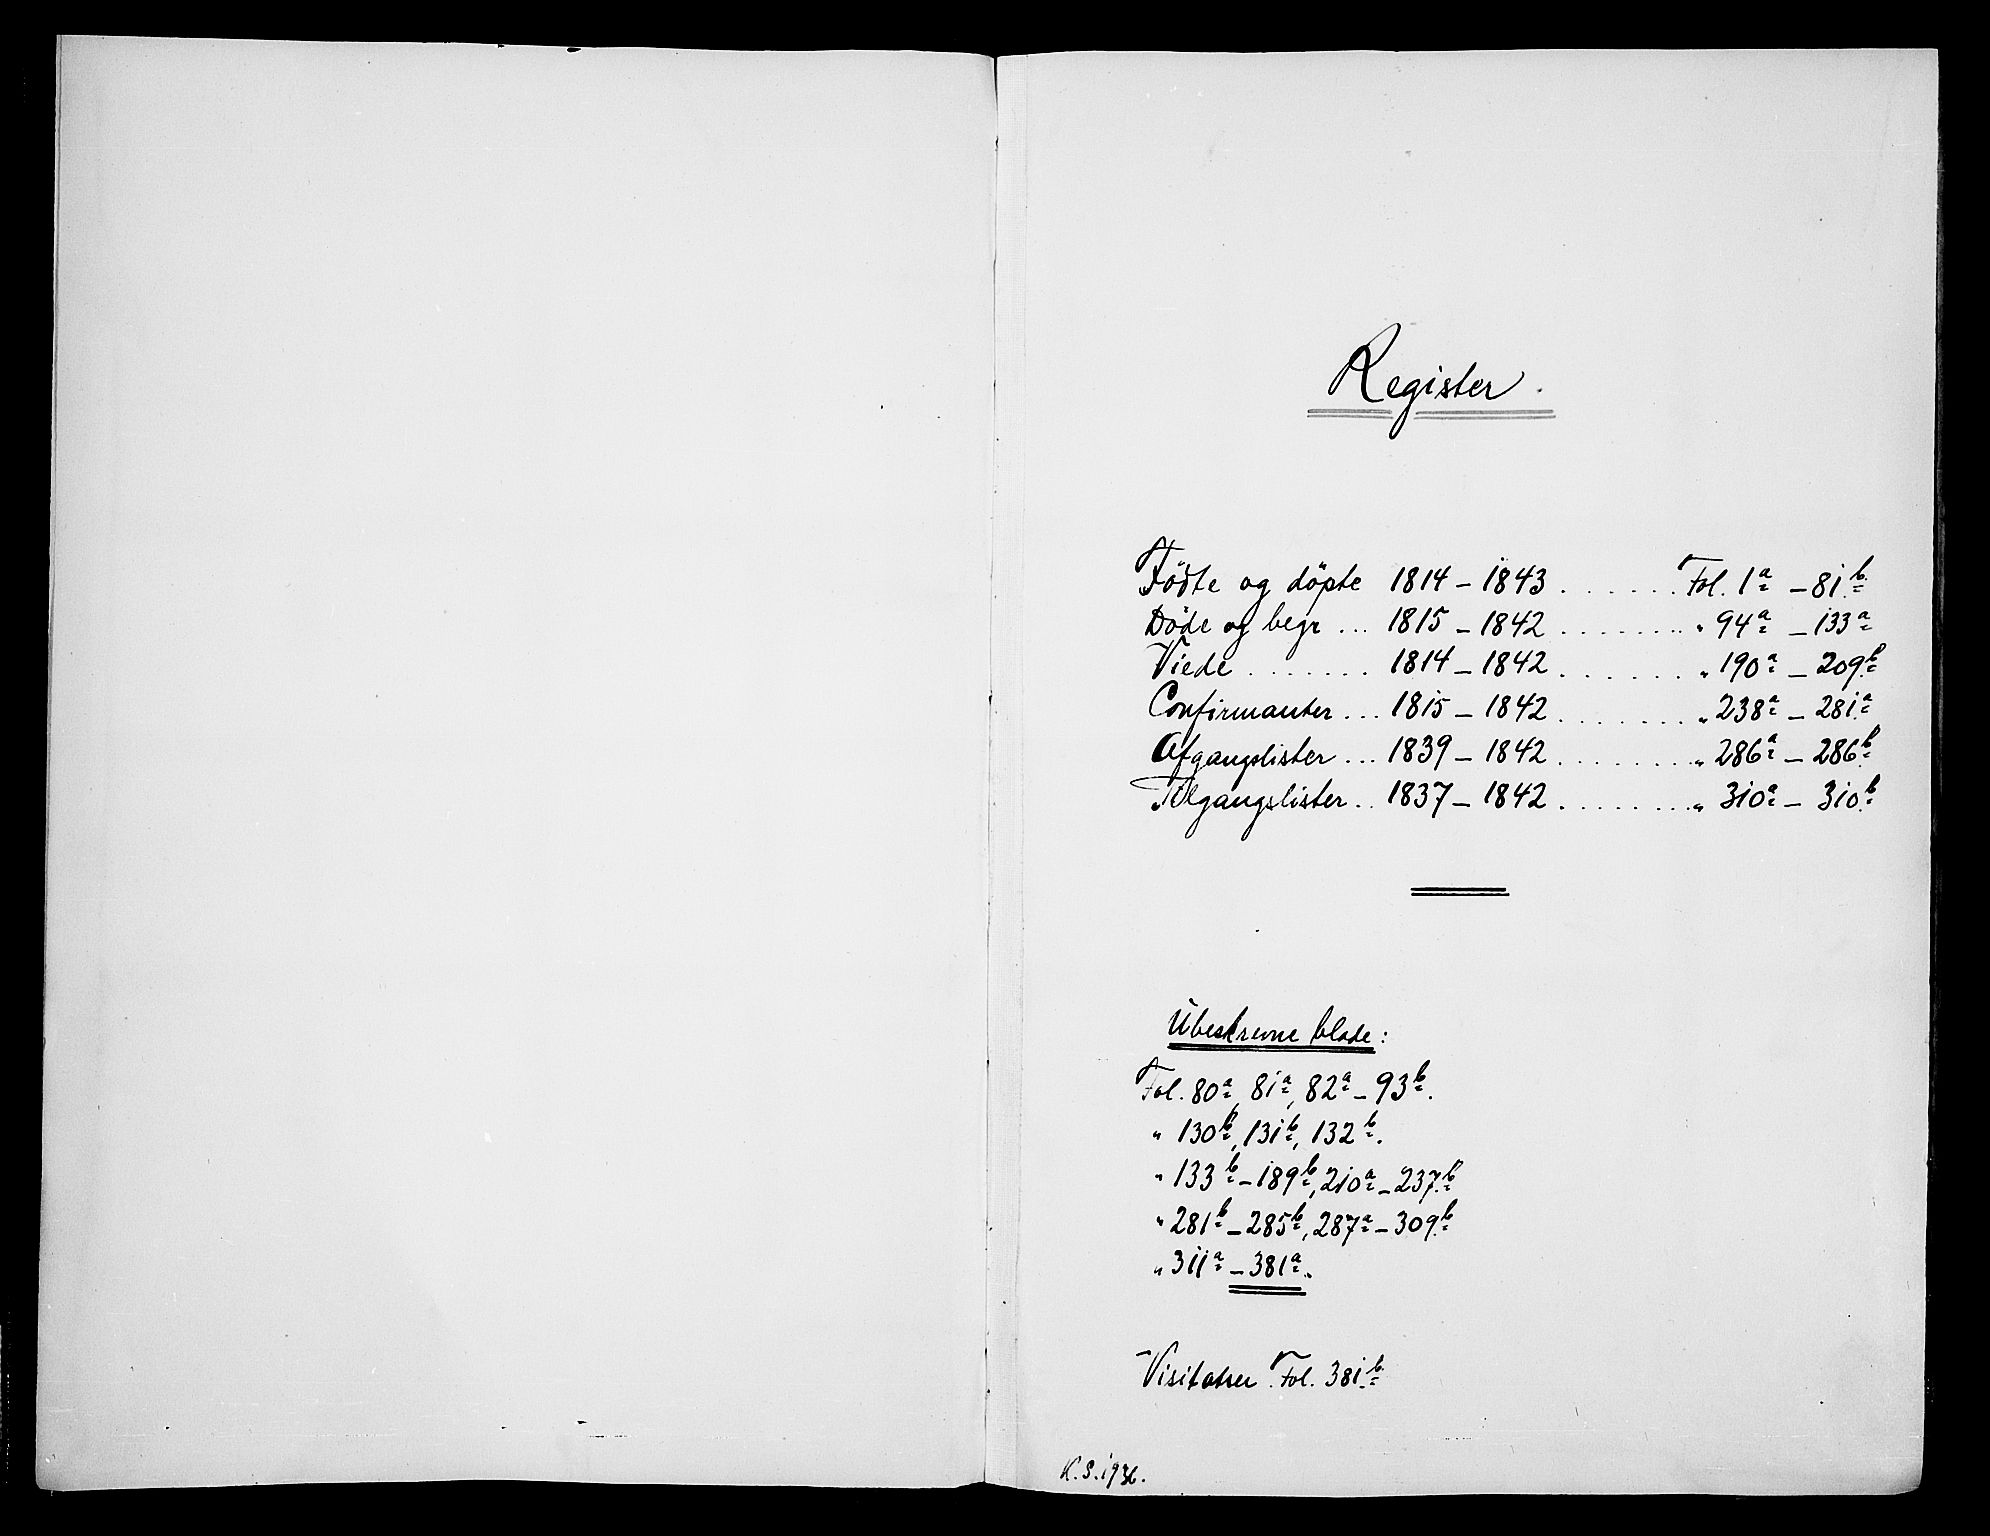 Register.
Födte og döpte 1814 – 1843 . . . . . . Fol. 1a – 81b.
Döde og begr ... 1815 – 1842 . . . . . . . „ 94a – 133a
Viede . . . . . . . 1814 – 1842 . . . . . . . „ 190a – 209b
Confirmanter ... 1815 – 1842 . . . . . . . „ 238a – 281a
Afgangslister ... 1839 – 1842 . . . . . . . „ 286a – 286b
Tilgangslister .. 1837 – 1842 . . . . . . . „ 310a – 310b.
Ubeskrevne blade:
Fol. 80a, 81a, 82a – 93b.
„ 130b, 131b, 132b.
„ 133b – 189b, 210a – 237b
„ 281b – 285b, 287a – 309b
„ 311a – 381a.
Visitatser Fol. 381b
K.S. 1936.